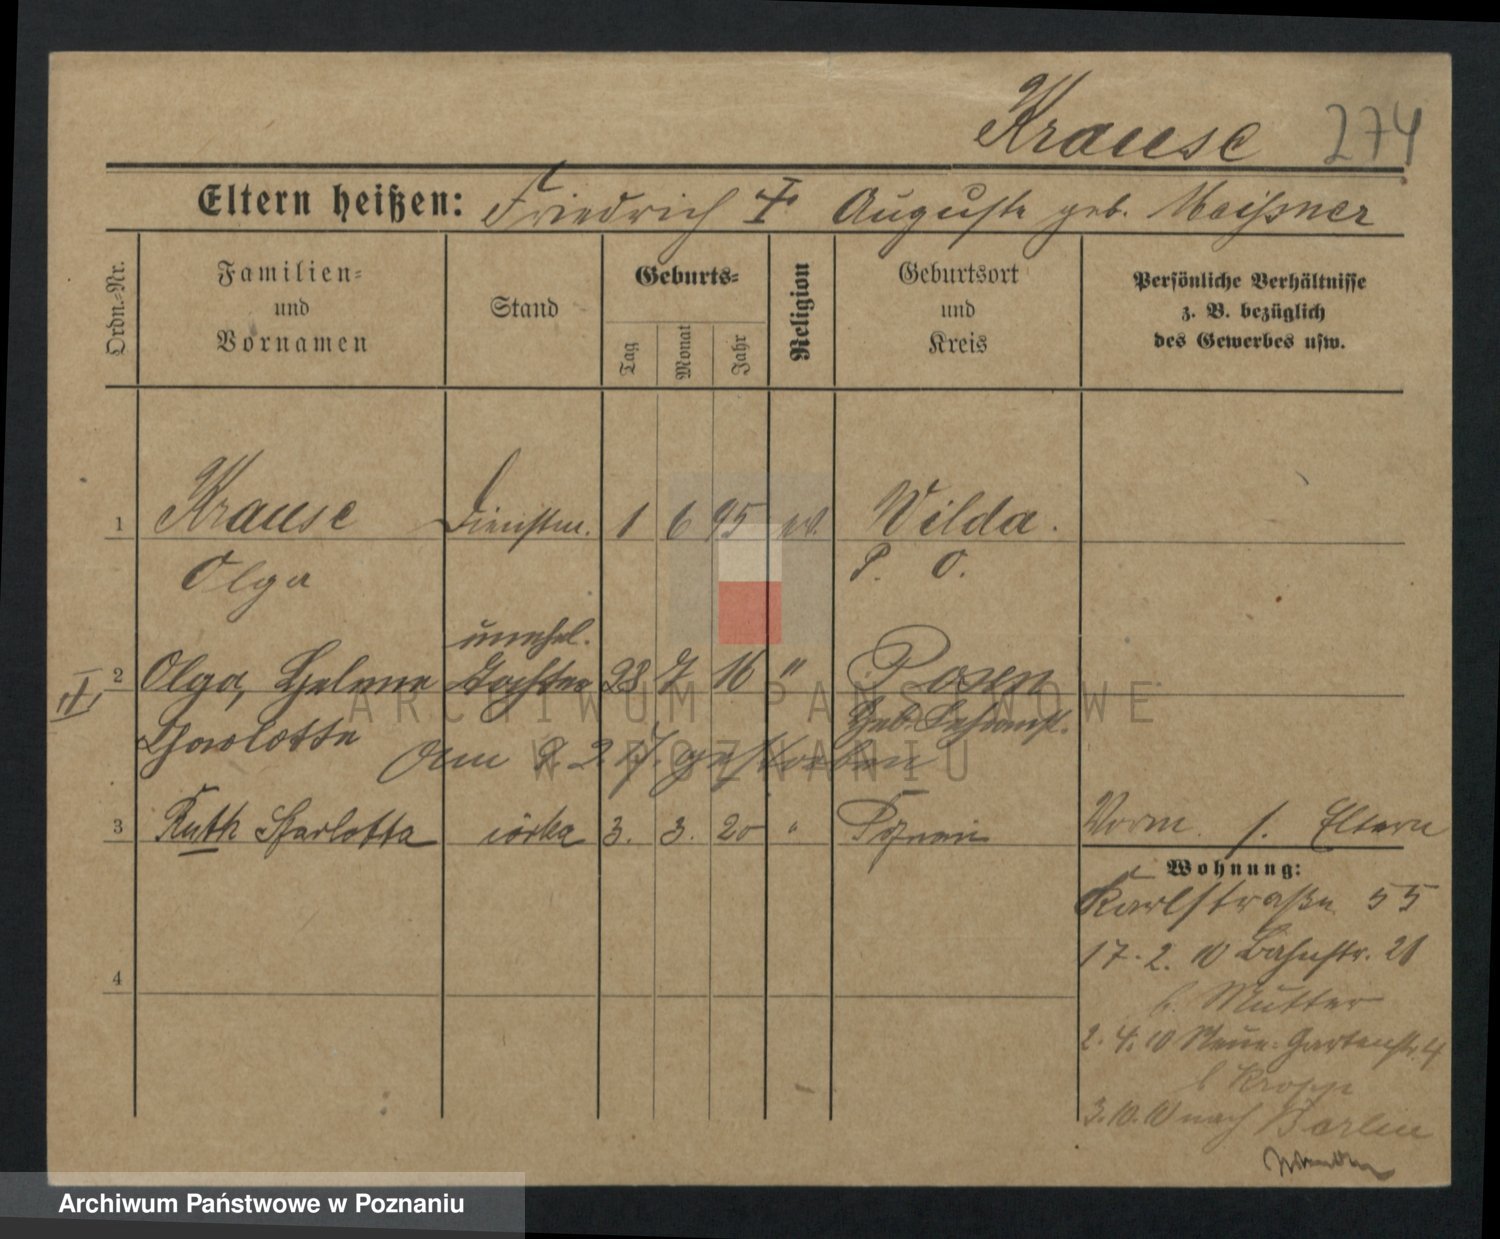 Krause 274
Eltern heißen: Friedrich † Auguste geb. Meißner
Ordn.-Nr.
Familien-
und
Vornamen
Stand
Geburts-
Tag
Monat
Jahr
Religion
Geburtsort
und
Kreis
Persönliche Verhältnisse
z. B. bezüglich
des Gewerbes usw.
1 Krause Dienstm. 1 6 95 ev. Wilda.
Olga P. O.
unehel.
2 Olga, Helene Tochter 28 7 16 " Posen
Charlotte Geb.
am 2. 2. 17. gestorben
3 Ruth Charlotta córka 3. 3. 20 " Poznań
Vorm. s. Eltern
Wohnung:
Karlstraße 55
17. 2. 10 Bahnstr. 21
b. Mutter
4
2. 4. 10 Neue Gartenstr. 4
b Kropp
3. 10. 10 nach Berlin
ARCHIWUM PAŃSTWOWE
W POZNANIU
Archiwum Państwowe w Poznaniu